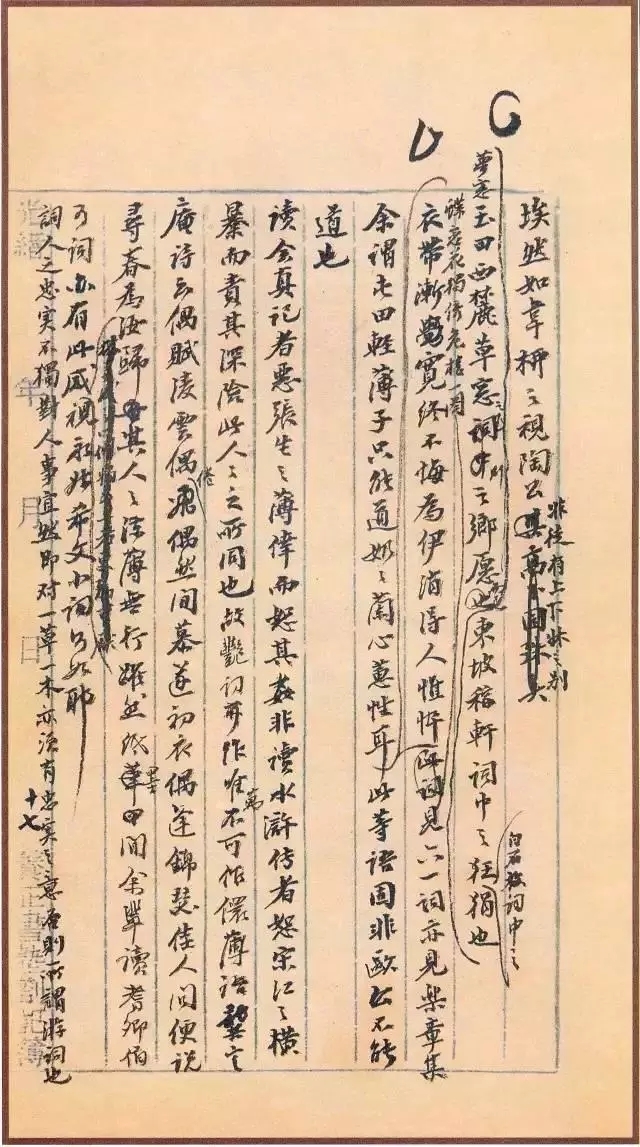 埃然如韋柳之視陶公其高下固殊矣
非徒有上下牀之別
夢窗玉田西麓草窗詞中之鄉愿也東坡稼軒詞中之狂狷也
白石猶詞中之
蝶戀花獨倚危樓一闋
衣帶漸寬終不悔為伊消得人憔悴此詞見六一詞亦見樂章集
余謂屯田輕薄子只能道奶奶蘭心蕙性耳此等語固非歐公不能
道也
讀會真記者惡張生之薄倖而恕其姦非讀水滸傳者恕宋江之橫
暴而責其深險此人人之所同也故艷詞可作唯萬不可作儇薄語龔定
庵詩云偶賦凌雲偶倦飛偶然間慕遂初衣偶逢錦瑟佳人問便說
尋春為汝歸其人之涼薄無行躍然紙墨間余輩讀耆卿伯
可詞亦有此感視永叔希文小詞何如耶
詞人之忠實不獨對人事宜然即对一草一木亦須有忠實之意否則所謂游詞也
十七
光緒 年 月 日
養正書塾劄記簿